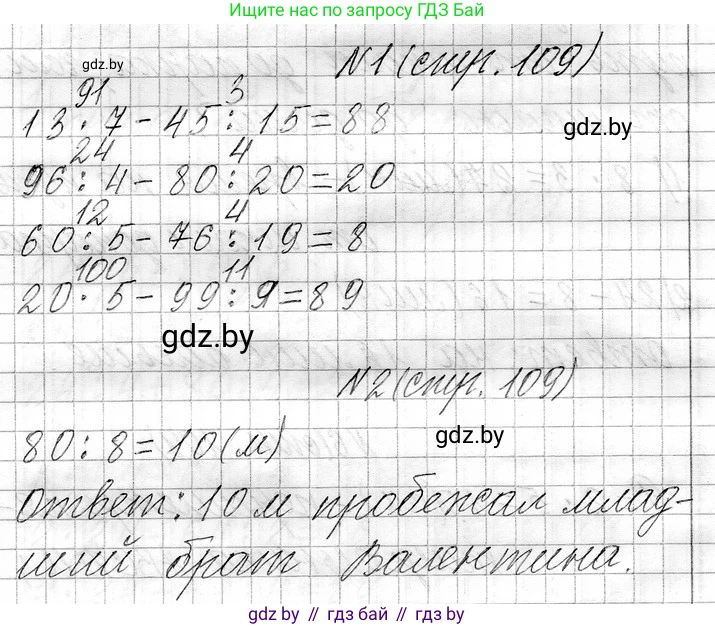 Ищите нас по запросу ГДЗ Бай
gdz.by
N1 (стр. 109)
91 3
13 · 7 - 45 : 15 = 88
gdz.by
24 4
96 : 4 - 80 : 20 = 20
12 4
60 : 5 - 76 : 19 = 8
100 11
20 · 5 - 99 : 9 = 89
gdz.by
N2 (стр. 109)
gdz.by
80 : 8 = 10 (м)
Ответ: 10 м пробежал млад-
ший брат Валентина.
gdz.by // гдз бай // gdz.by